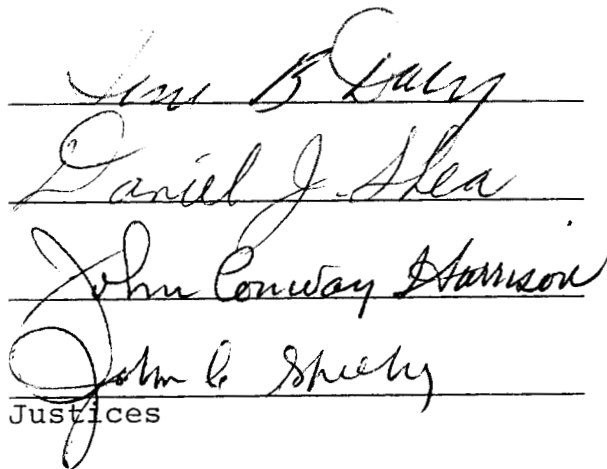 Gene B Daly
Daniel J. Shea
John Conway Harrison
John C Sheehy
Justices